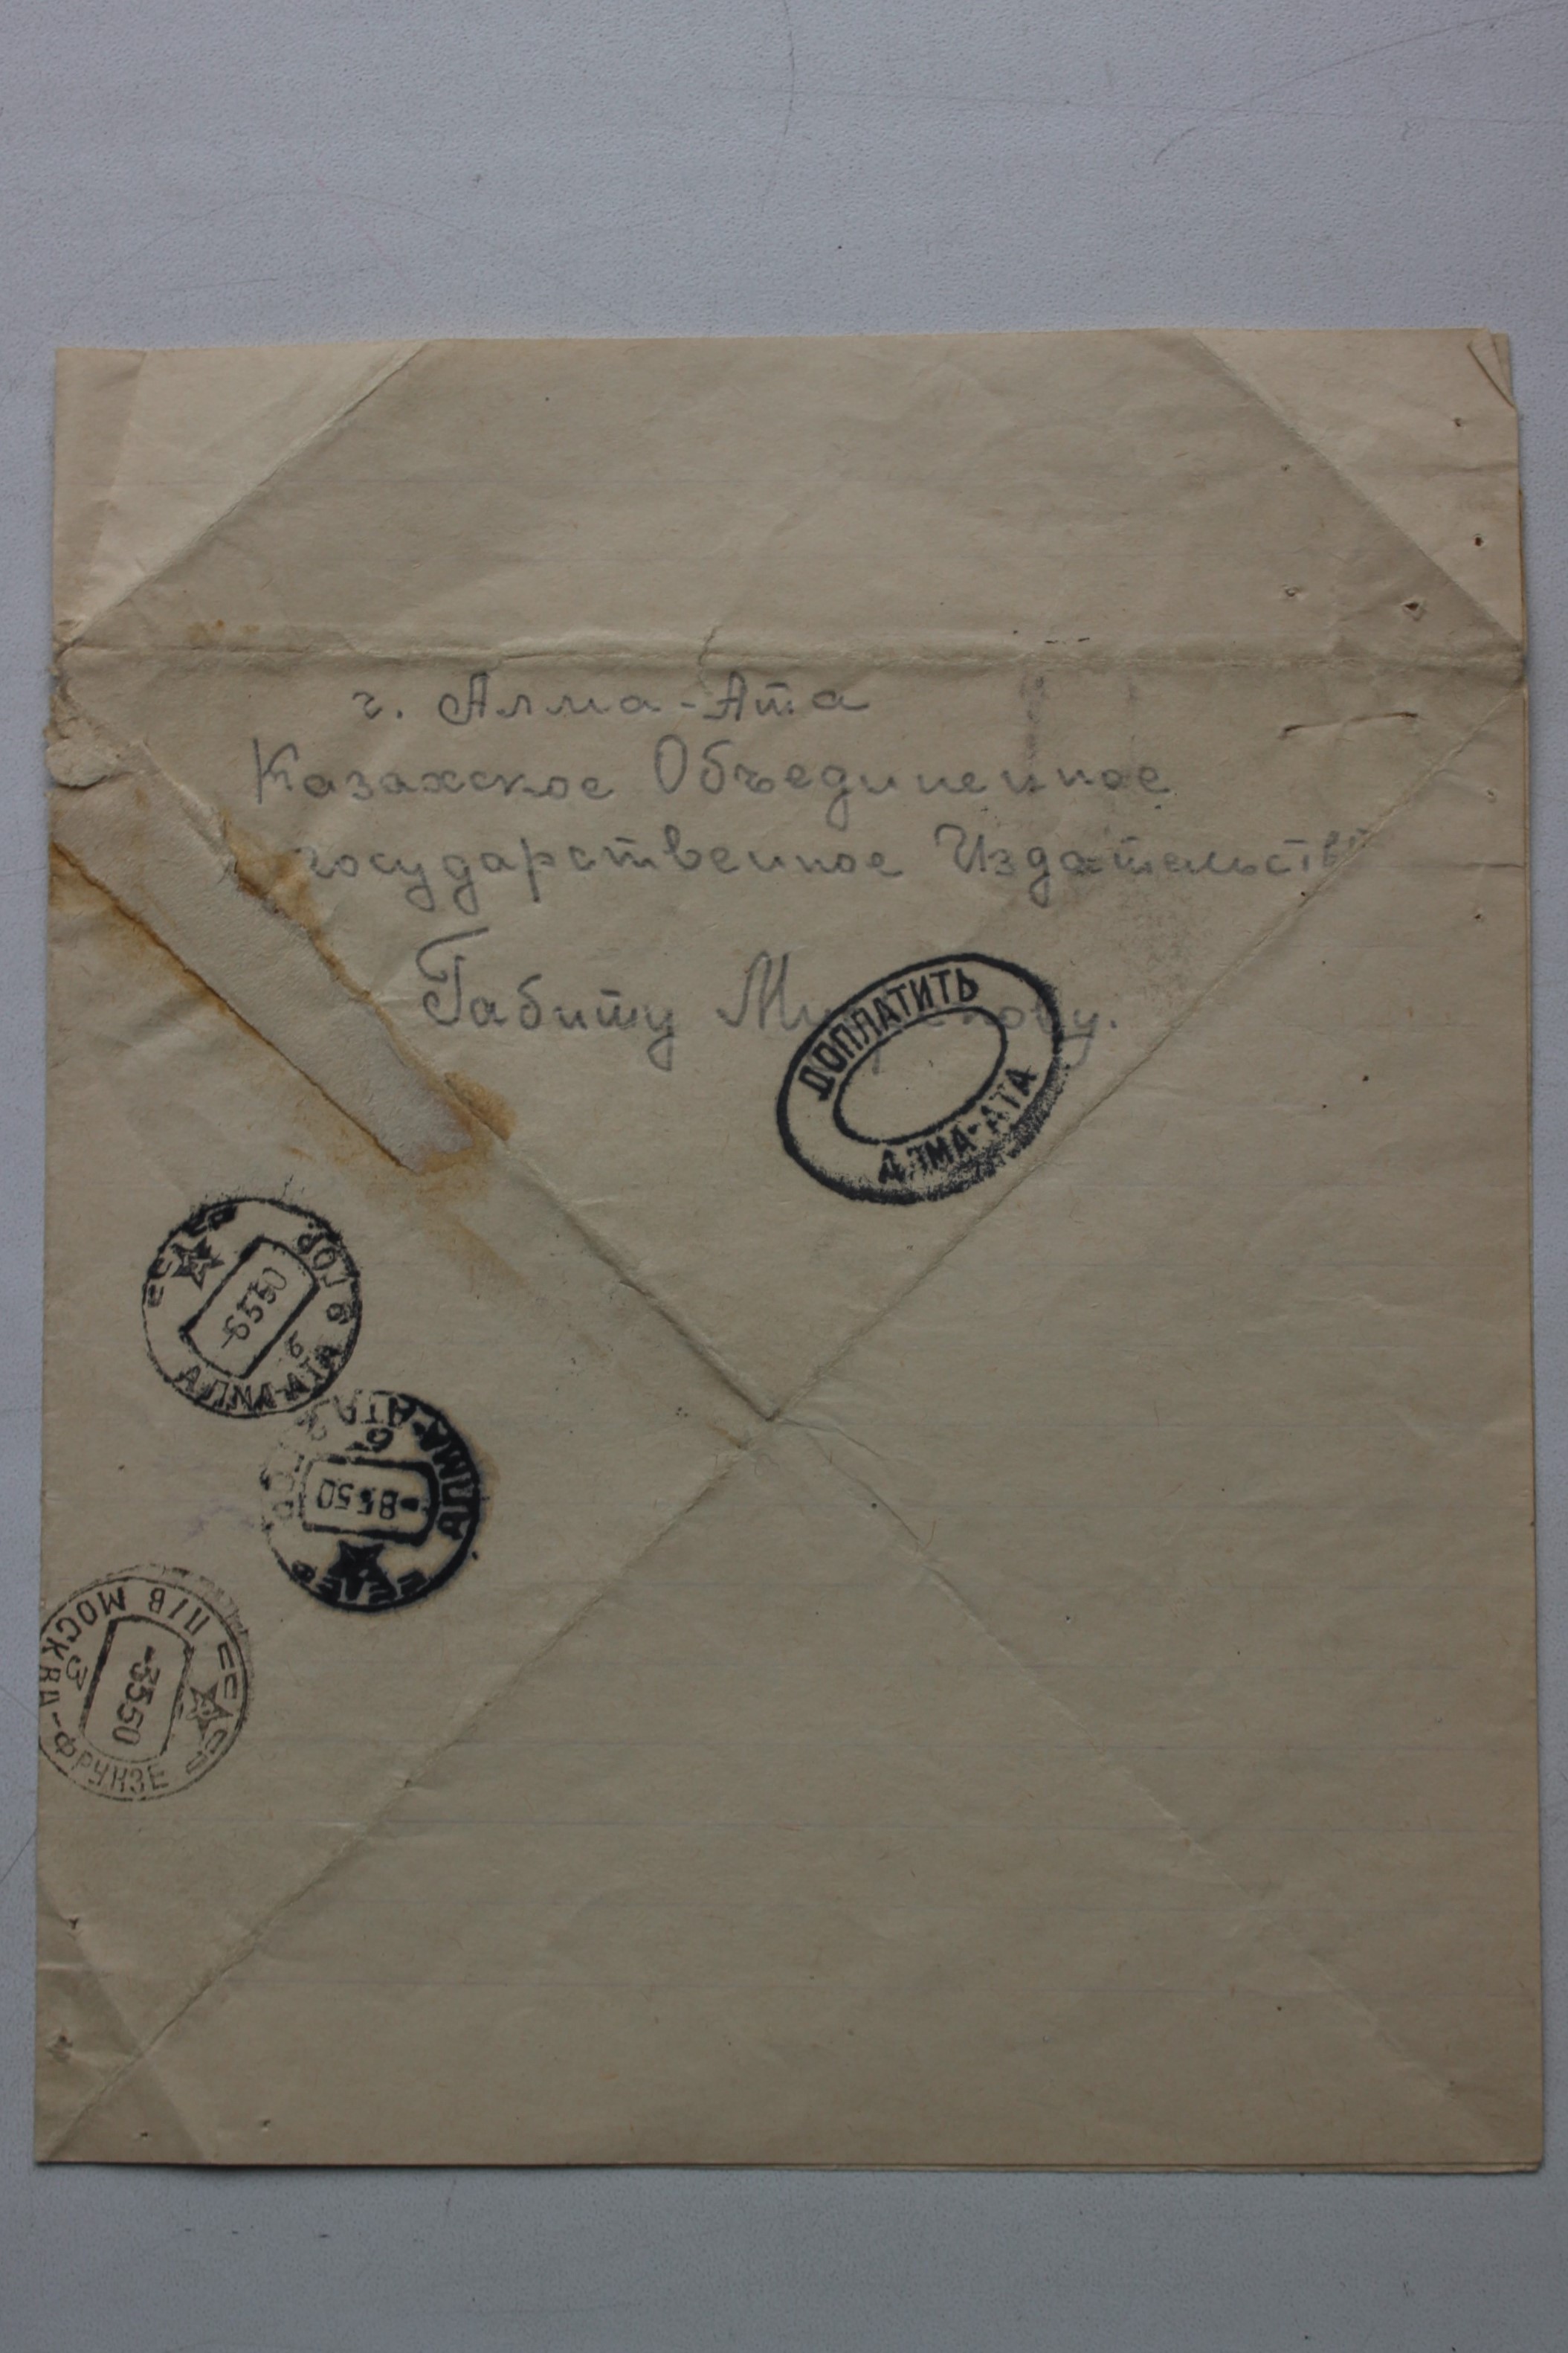 г. Алма-Ата
Казахское Объединенное
государственное Издательств
Габиту
ДОПЛАТИТЬ
АЛМА-АТА
СССР
-6 5 50
АЛМА-АТА 6 ГОР.
б
АЛМА-АТА
-8 5 50
б
П/В МОСКВА-ФРУНЗЕ
-3 5 50
3